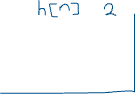 h[n] 2